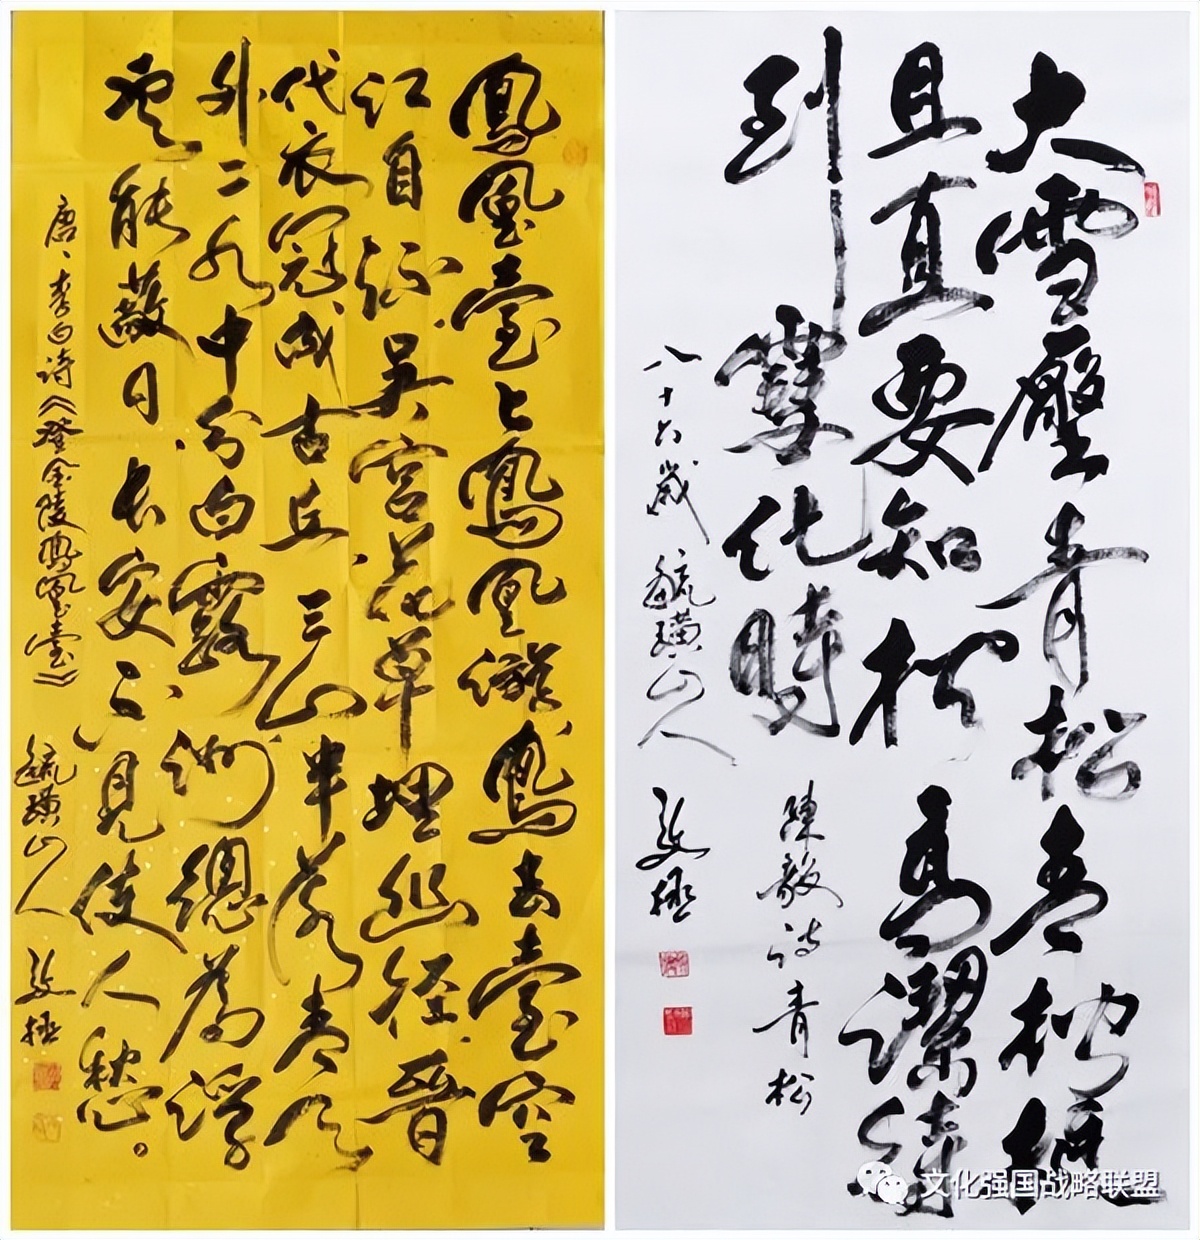 鳳凰臺上鳳凰游鳳去臺空
江自流吳宮花草埋幽徑晉
代衣冠成古丘三山半落青天
外二水中分白鷺洲總為浮
雲能蔽日長安不見使人愁。
唐、李白诗《登金陵鳳凰臺》
毓璜山人
大雪壓青松青松挺
且直要知松高潔待
到雪化時
陳毅诗青松
八十六歲 毓璜山人
文化强国战略联盟